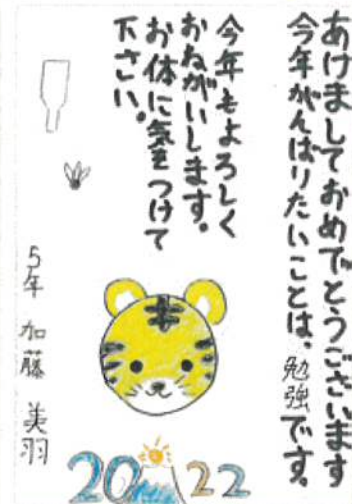 あけましておめでとうございます
今年がんばりたいことは、勉強です。
今年もよろしく
おねがいします。
お体に気をつけて
下さい。
5年 加藤 美羽
2022